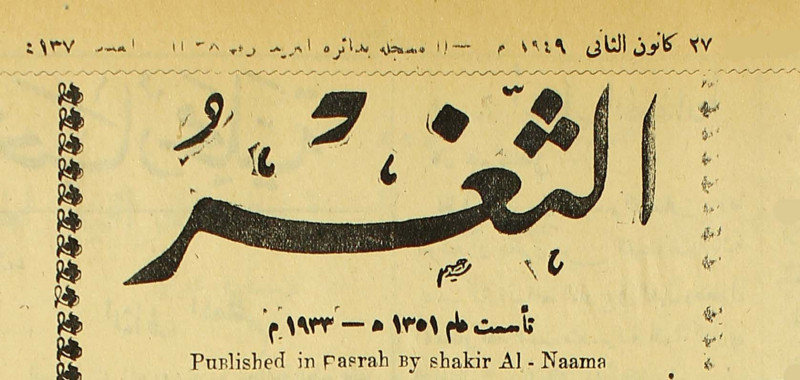 ٢٧ كانون الثاني ١٩٤٩ م — مسجلة بدائرة البريد رقم ١١٣٨
الثغر
تأسست عام ١٣٥١ ه — ١٩٣٣ م
Published in Basrah By shakir Al - Naama